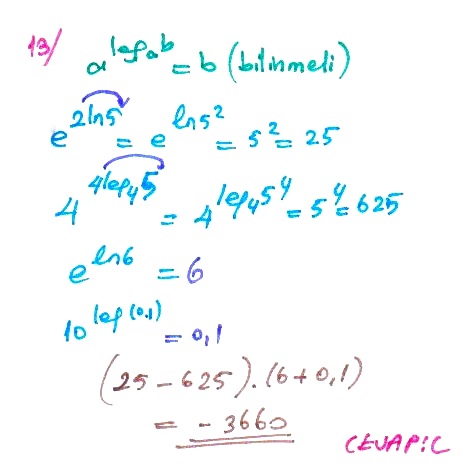 13/ a^log_a b = b (bilinmeli)
e^2ln5 = e^ln5² = 5² = 25
4^4log_4 5 = 4^log_4 5⁴ = 5⁴ = 625
e^ln6 = 6
10^log(0.1) = 0,1
(25 - 625).(6 + 0,1)
= - 3660
CEVAP: C